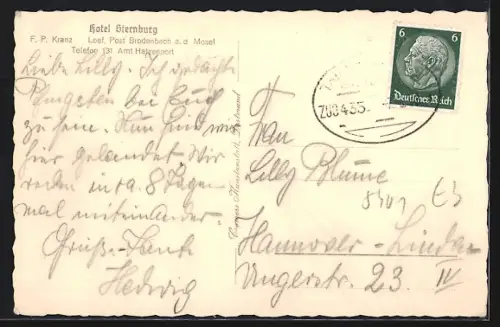 Hotel Sternburg
F. P. Kranz Loef, Post Brodenbach a. d. Mosel
Telefon 131 Amt Hatzenport
Liebe Lilly. Ich gedachte
Pfingsten bei Euch
zu sein. Nun sind wir
hier gelandet. Wir
reden in ca. 8 Tagen
mal miteinander
Gruß
Hedwig
6 6
Deutsches Reich
ZUG 435
Frau
Lilly Blume
Hannover-Linden
Ungerstr. 23. IV